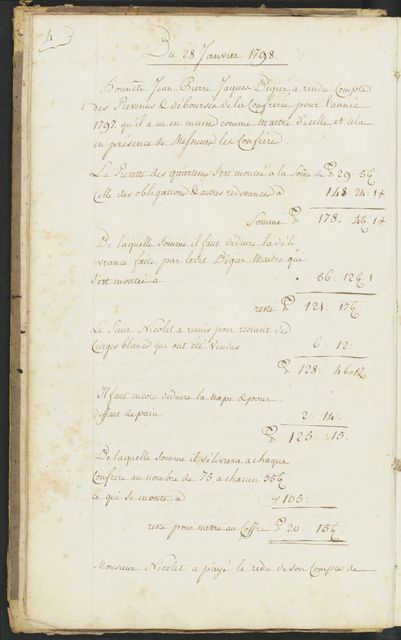 4.
Du 28 Janvier 1798
Honnete Jean Pierre Jaques Digier a rendu Compte
des Revenus & debourses de la Confrerie pour l'année
1797. qu'il a eu en main comme Maitre d'icelle et cela
en presence de Messieurs les Confrère.
La Recette des quarterus s'est montée a la Sôme de 29: 56
Celle des obligations & autres redevances a 148: 24: 1 4
Somme 178: 46: 1 4
De laquelle somme il faut deduire la déli
vrance faite par ledit Digier Maitre qui
s'est montée a 56: 126 1
reste 121: 176
Le Sieur Nicolet a remis pour restant des
Cierges blancs qui ont été Vendus 6: 12:
128: 4
Il faut encore deduire la nape & pour
deffaut de pain 2: 14:
125: 15:
De laquelle somme il délivrera a chaque
Confrère au nombre de 75 a chacun 356
ce qui se monte a 105:
reste pour mettre au Coffre 20: 156
Monsieur Nicolet a payé le redu de son Compte de